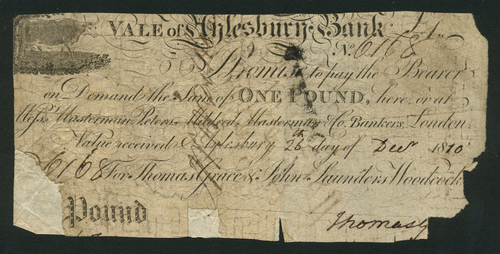 VALE of Aylesbury Bank
No. 6168
I Promise to pay the Bearer
on Demand the Sum of ONE POUND, here, or at
Messrs Masterman Peters Mildred Masterman & Co. Bankers London
Value received Aylesbury 26th day of Decr 1810
6168 For Thomas Grace & John Saunders Woodcock
Pound
Thomas G